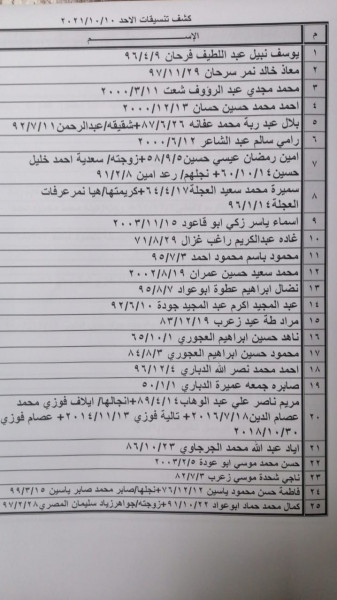 كشف تنسيقات الاحد ٢٠٢١/١٠/١٠
م الإســـــــم
١ يوسف نبيل عبد اللطيف فرحان ٩٦/٤/٩
٢ معاذ خالد نمر سرحان ٩٧/١١/٢٩
٣ محمد مجدي عبد الرؤوف شعت ٢٠٠٠/٣/١١
٤ احمد محمد حسين حسان ٢٠٠٠/١٢/١٣
٥ بلال عبد ربة محمد عفانه ٨٧/٦/٢٦+شقيقه/عبدالرحمن ٩٢/٧/١١
٦ رامي سالم عبد الشاعر ٢٠٠٠/٦/١٢
٧ امين رمضان عيسي حسين ٥٨/٩/٥+زوجته/ سعدية احمد خليل
حسين ٦٠/١٠/١٤+ نجلهم/ رعد امين ٩١/٢/٨
٨ سميرة محمد سعيد العجلة ٦٤/٤/١٧+كريمتها/هيا نمرعرفات
العجلة ٩٦/١/١٤
٩ اسماء ياسر زكي ابو قاعود ٢٠٠٣/١١/١٥
١٠ غاده عبدالكريم راغب غزال ٧١/٨/٢٩
١١ محمود بأسم محمود احمد ٩٥/٧/٣
١٢ محمد سعيد حسين عمران ٢٠٠٢/٨/١٩
١٣ نضال ابراهيم عطوة ابوعواد ٩٥/٨/٧
١٤ عبد المجيد اكرم عبد المجيد جودة ٩٢/٦/١٠
١٥ مراد طة عيد زعرب ٨٣/١٢/١٩
١٦ ناهد حسين ابراهيم العجوري ٦٥/١٠/١
١٧ محمود حسين ابراهيم العجوري ٨٤/٨/٣
١٨ احمد محمد نصر الله الدباري ٩٦/١٢/٤
١٩ صابره جمعه عميرة الدباري ٥٠/١/١
٢٠ مريم ناصر علي عبد الوهاب ٨٩/٤/١٤+انجالها/ ايلاف فوزي محمد
عصام الدين ٢٠١٦/٧/١٨+ تالية فوزي ٢٠١٤/١١/١٣+ عصام فوزي
٢٠١٨/١٠/٣٠
٢١ اياد عبد الله محمد الجرجاوي ٨٦/١٠/٢٣
٢٢ حسن محمد موسي ابو عودة ٢٠٠٣/٢/٥
٢٣ ناجي شحدة موسي زعرب ٨٢/٧/٣
٢٤ فاطمة حسن محمود ياسين ٧٦/١٢/١٢+نجلها/صابر محمد صابر ياسين ٩٩/٣/١٥
٢٥ كمال محمد حماد ابوعواد ٩١/١٠/٢٢+زوجته/جواهرزياد سليمان المصري ٩٧/٢/٢٨